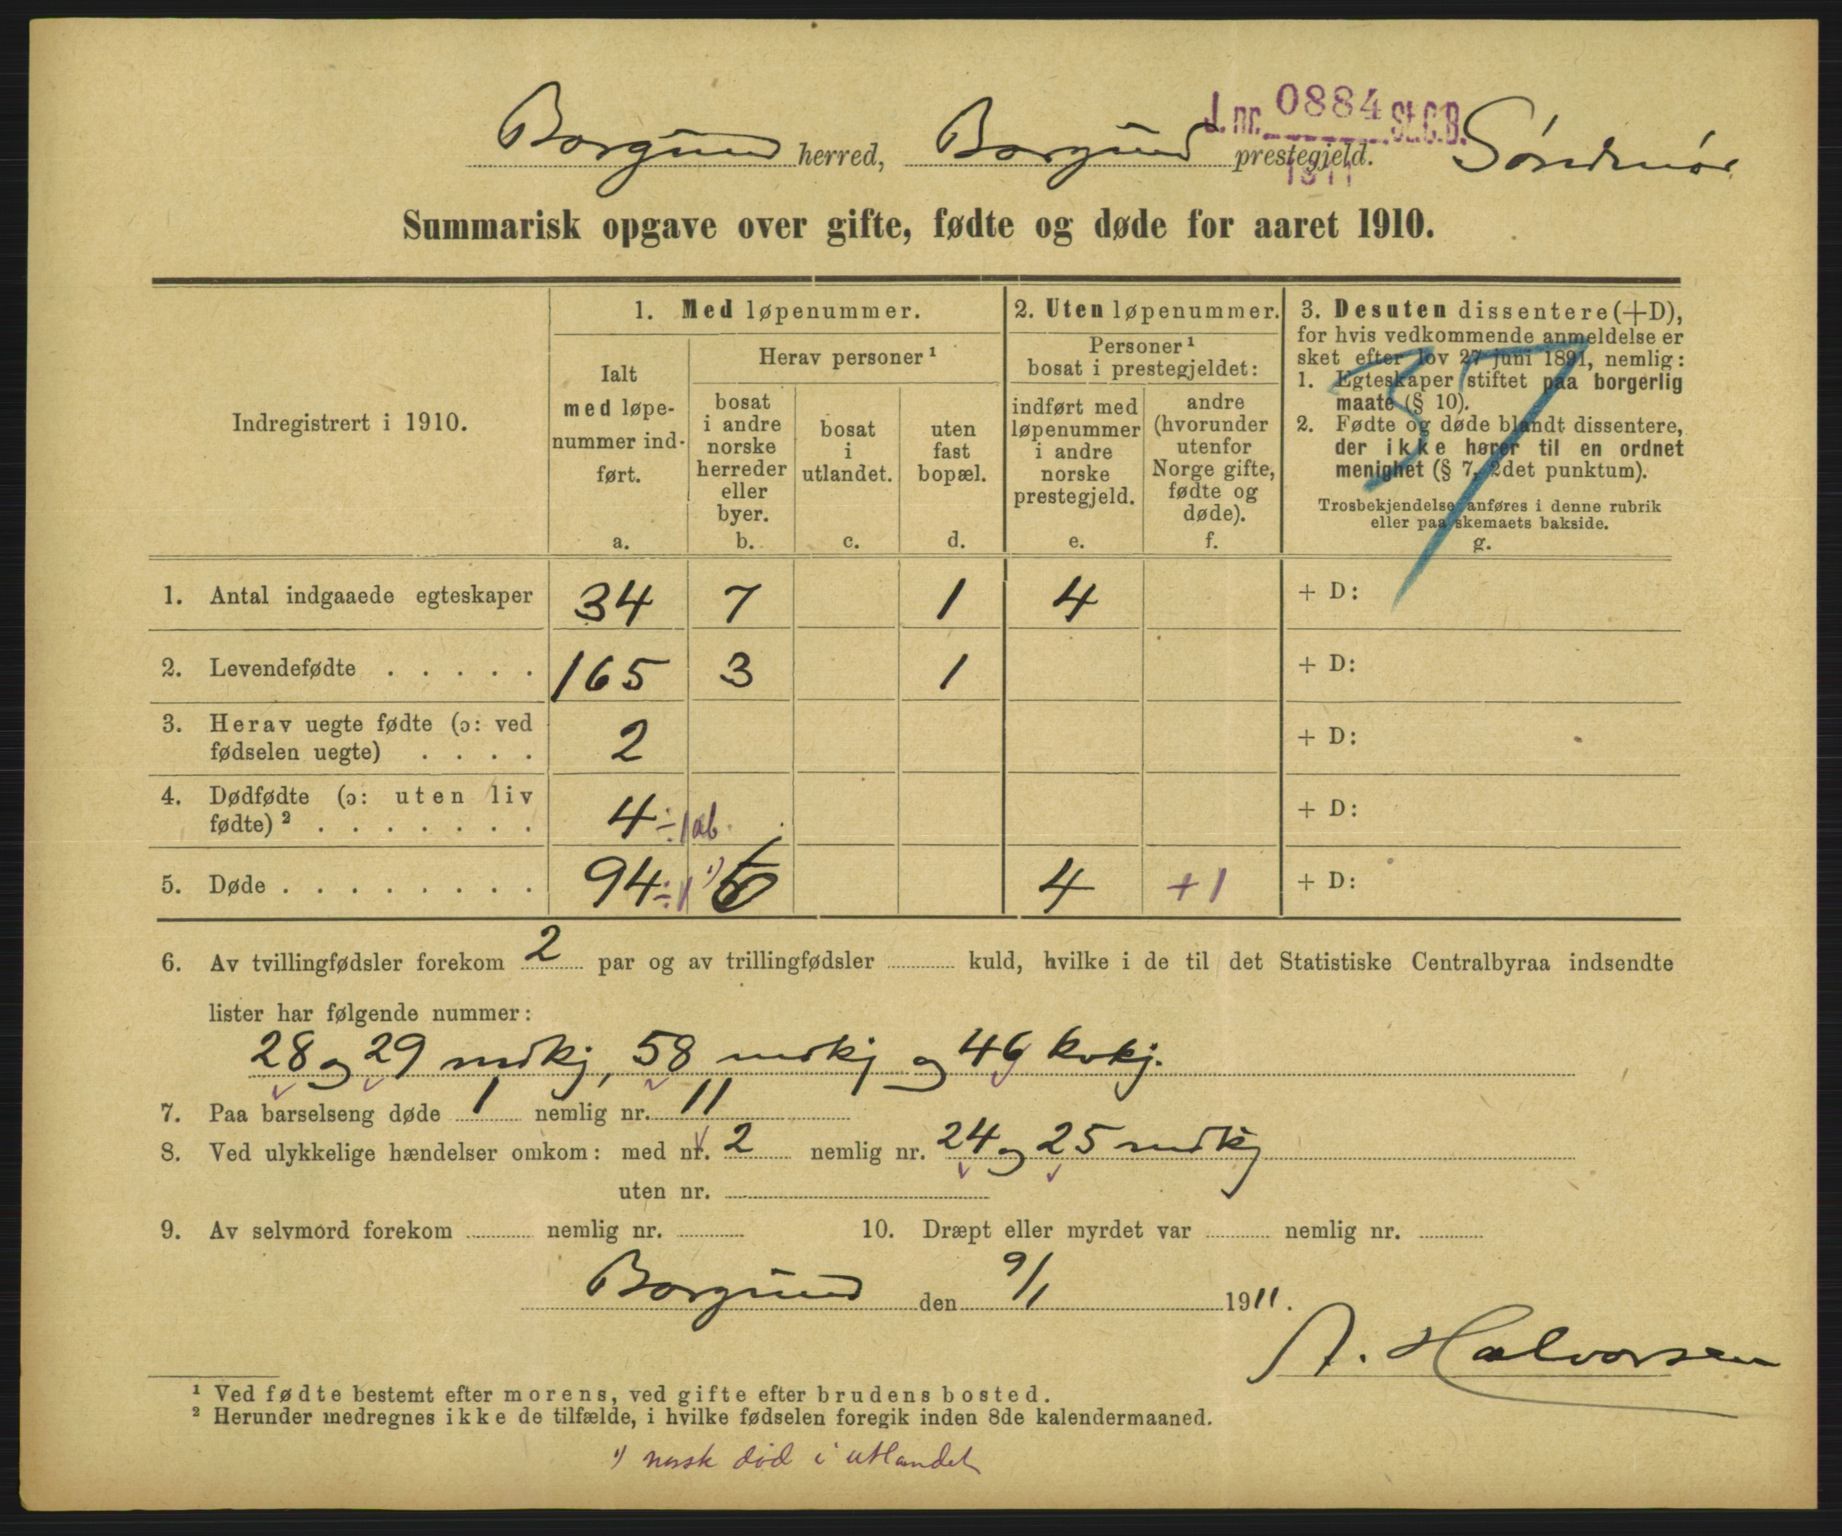 J. nr. 0884 St.C.B.
1911
Borgund herred, Borgund prestegjeld. Søndmør
Summarisk opgave over gifte, fødte og døde for aaret 1910.
Indregistrert i 1910.
1. Med løpenummer.
Ialt
med løpe-
nummer ind-
ført.
a.
Herav personer¹
bosat
i andre
norske
herreder
eller
byer.
b.
bosat
i
utlandet.
c.
uten
fast
bopæl.
d.
2. Uten løpenummer.
Personer¹
bosat i prestegjeldet:
indført med
løpenummer
i andre
norske
prestegjeld.
e.
andre
(hvorunder
utenfor
Norge gifte,
fødte og
døde).
f.
3. Desuten dissentere (+D),
for hvis vedkommende anmeldelse er
sket efter lov 27 juni 1891, nemlig:
1. Egteskaper stiftet paa borgerlig
maate (§ 10).
2. Fødte og døde blandt dissentere,
der ikke hører til en ordnet
menighet (§ 7, 2det punktum).
Trosbekjendelse anføres i denne rubrik
eller paa skemaets bakside.
g.
37
1. Antal indgaaede egteskaper 34 7 1 4 + D:
2. Levendefødte . . . . . 165 3 1 + D:
3. Herav uegte fødte (ɔ: ved
fødselen uegte) . . . . 2 + D:
4. Dødfødte (ɔ: uten liv
fødte)² . . . . . . . 4 ÷1ab. + D:
5. Døde . . . . . . . . 94 ÷1 ¹) 6 4 +1 + D:
6. Av tvillingfødsler forekom 2 par og av trillingfødsler kuld, hvilke i de til det Statistiske Centralbyraa indsendte
lister har følgende nummer:
28 og 29 mdkj, 58 mdkj og 46 kvkj.
7. Paa barselseng døde 1 nemlig nr. 11
8. Ved ulykkelige hændelser omkom: med nr. 2 nemlig nr. 24 og 25 mdkj
uten nr.
9. Av selvmord forekom nemlig nr. 10. Dræpt eller myrdet var nemlig nr.
Borgund den 9/1 1911.
A. Halvorsen
¹ Ved fødte bestemt efter morens, ved gifte efter brudens bosted.
² Herunder medregnes ikke de tilfælde, i hvilke fødselen foregik inden 8de kalendermaaned.
¹) norsk død i utlandet